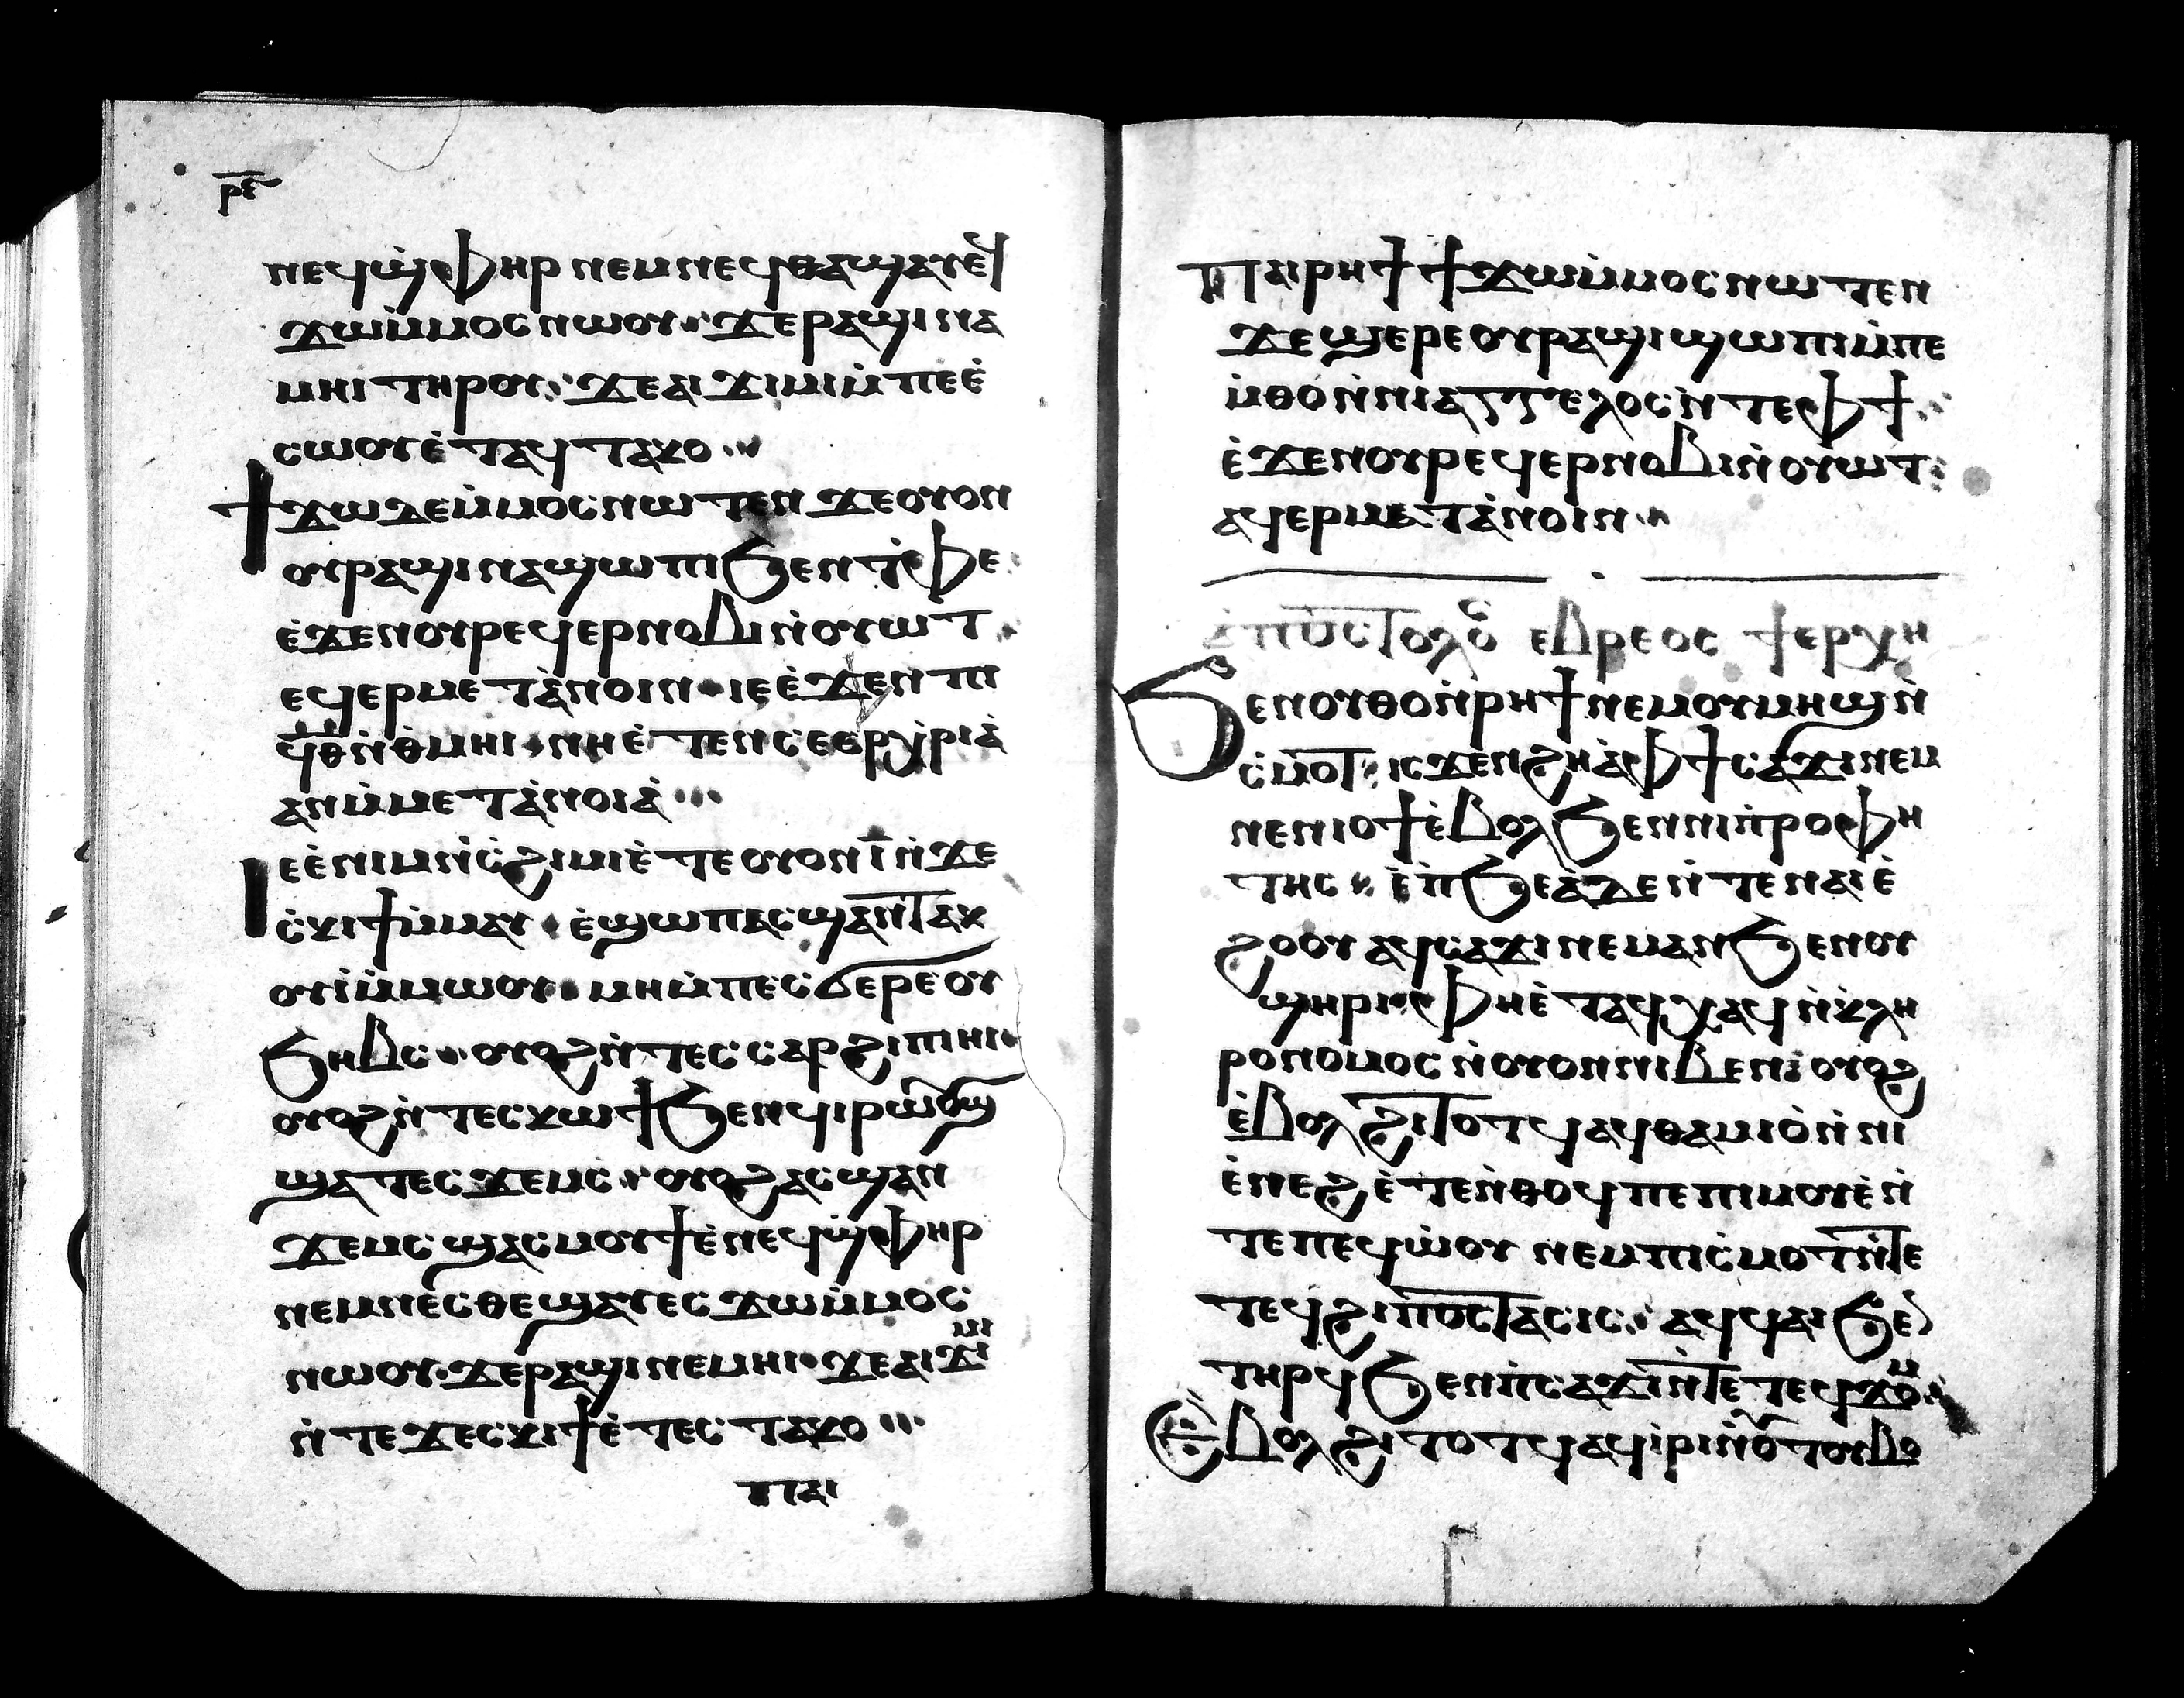 ⲣⲉ̅
ⲛⲉϥϣ̀ⲫⲏⲣ ⲛⲉⲙⲛⲉϥⲑⲁϣⲁⲩⲉϥ
ϫⲱⲙ̀ⲙⲟⲥⲛⲱⲟⲩ ϫⲉⲣⲁϣⲓⲛⲁ
ⲙⲏⲓ ⲧⲏⲣⲟⲩ ϫⲉⲁⲓϫⲓⲙⲓⲙ̀ⲡⲉⲉ̀
ⲥⲱⲟⲩⲉ̀ⲧⲁϥⲧⲁⲕⲟ
ϯϫⲱⲇⲉⲙ̀ⲙⲟⲥⲛⲱⲧⲉⲛ ϫⲉⲟⲩⲟⲛ
ⲟⲩⲣⲁϣⲓⲛⲁϣⲱⲡⲓϧⲉⲛⲧ̀ⲫⲉ
ⲉ̀ϫⲉⲛⲟⲩⲣⲉϥⲉⲣⲛⲟⲃⲓⲛ̀ⲟⲩⲱⲧ
ⲉϥⲉⲣⲙⲉⲧⲁ̀ⲛⲟⲓⲛ ⲓⲉⲉ̀ϫⲉⲛ ⲡⲓ
ϥ̅ⲑ̅ⲛ̀ⲑ̀ⲙⲏⲓ ⲛⲏⲉ̀ⲧⲉⲛⲥⲉⲉⲣⲭ̀ⲣⲓⲁ̀
ⲁⲛⲙ̀ⲙⲉⲧⲁ̀ⲛⲟⲓⲁ̀
ⲓⲉⲉ̀ⲛⲓⲙⲛ̀ⲥ̀ϩⲓⲙⲓⲉ̀ⲧⲉⲟⲩⲟⲛⲓ̅ⲛ̀ϫⲉ
ⲥ̀ⲕⲓϯⲙ̀ⲙⲁⲩ ⲉ̀ϣⲱⲡⲁⲥϣⲁⲛⲧⲁⲕ
ⲟⲩⲓ̀ⲙ̀ⲙⲱⲟⲩ ⲙⲏⲙ̀ⲡⲉⲥϭⲉⲣⲉⲟⲩ
ϧⲏⲃⲥ ⲟⲩⲟϩⲛ̀ⲧⲉⲥⲥⲁⲣϩⲓⲡⲓⲏⲓ
ⲟⲩⲟϩⲛ̀ⲧⲉⲥⲕⲱϯϧⲉⲛϥⲓⲣⲱⲟⲩϣ
ϣⲁⲧⲉⲥϫⲉⲙⲥ ⲟⲩⲟϩⲁⲥϣⲁⲛ
ϫⲉⲙⲥ ϣⲁⲥⲙⲟⲩϯⲉ̀ⲛⲉϥϣ̀ⲫⲏⲣ
ⲛⲉⲙⲛⲉⲥⲑⲉϣⲁⲩⲉⲥϫⲱⲙ̀ⲙⲟⲥ
ⲛⲱⲟⲩ ϫⲉⲣⲁϣⲓⲛⲉⲙⲏⲓ ϫⲉⲁⲓϫⲓⲙⲓ
ⲛ̀ⲧⲉϫⲉⲥⲕⲓϯⲉ̀ⲧⲉⲥⲧⲁⲕⲟ
ⲡⲁⲓ
ⲡⲁⲓⲣⲏϯ ϯϫⲱⲙ̀ⲙⲟⲥⲛⲱⲧⲉⲛ
ϫⲉϣⲉⲣⲉⲟⲩⲣⲁϣⲓϣⲱⲡⲓⲙ̀ⲡⲉ
ⲙ̀ⲑⲟⲛ̀ⲛⲓⲁⲅⲅⲉⲗⲟⲥⲛ̀ⲧⲉⲫϯ
ⲉ̀ϫⲉⲛⲟⲩⲣⲉϥⲉⲣⲛⲟⲃⲓⲛ̀ⲟⲩⲱⲧ
ⲁϥⲉⲣⲙⲉⲧⲁ̀ⲛⲟⲓⲛ
ⲁ̀ⲡⲟⲥⲧⲟⲗⲟ ⲉⲃⲣⲉⲟⲥ ϯⲉⲣⲭⲏ
ϧⲉⲛⲟⲩⲑⲟⲛ̀ⲣⲏϯⲛⲉⲙⲟⲩⲙⲏϣⲛ̀
ⲥ̀ⲙⲟⲧ ⲓⲥϫⲉⲛϩⲏⲁ̀ⲫϯⲥⲁϫⲓⲛⲉⲙ
ⲛⲉⲛⲓⲟϯⲉ̀ⲃⲟⲗϧⲉⲛⲛⲓⲡ̀ⲣⲟⲫⲏ
ⲧⲏⲥ ⲉ̀ⲡ̀ϧⲉⲁ̀ⲇⲉⲛ̀ⲧⲉⲛⲁⲓⲉ̀
ϩⲟⲟⲩ ⲁϥⲥⲁϫⲓⲛⲉⲙⲁⲛϧⲉⲛⲟⲩ
ϣⲏⲣⲓ ⲫⲏⲉ̀ⲧⲁϥⲭⲁϥⲛ̀ⲕ̀ⲗⲏ
ⲣⲟⲛⲟⲙⲟⲥⲛ̀ⲟⲩⲟⲛⲛⲓⲃⲉⲛ ⲟⲩⲟϩ
ⲉ̀ⲃⲟⲗϩⲓⲧⲟⲧϥⲁϥⲑⲁⲙⲓⲟ̀ⲛ̀ⲛⲓ
ⲉ̀ⲛⲉϩⲉ̀ⲧⲉⲛ̀ⲑⲟϥⲡⲉⲡⲓⲙⲟⲩⲉ̀ⲛ̀
ⲧⲉⲡⲉϥⲱ̀ⲟⲩ ⲛⲉⲙⲡⲓⲥ̀ⲙⲟⲧⲛ̀ⲧⲉ
ⲧⲉϥϩⲓⲡⲟⲥⲧⲁⲥⲓⲥ ⲁϥϥⲁⲓϧⲉ
ⲧⲏⲣϥϧⲉⲛⲡ̀ⲥⲁϫⲓⲛ̀ⲧⲉⲧⲉϥϫⲟⲙ
ⲉ̀ⲃⲟⲗϩⲓⲧⲟⲧϥⲁϥⲓ̀ⲣⲓⲛ̀ⲟⲩⲧⲟⲩⲃⲟ